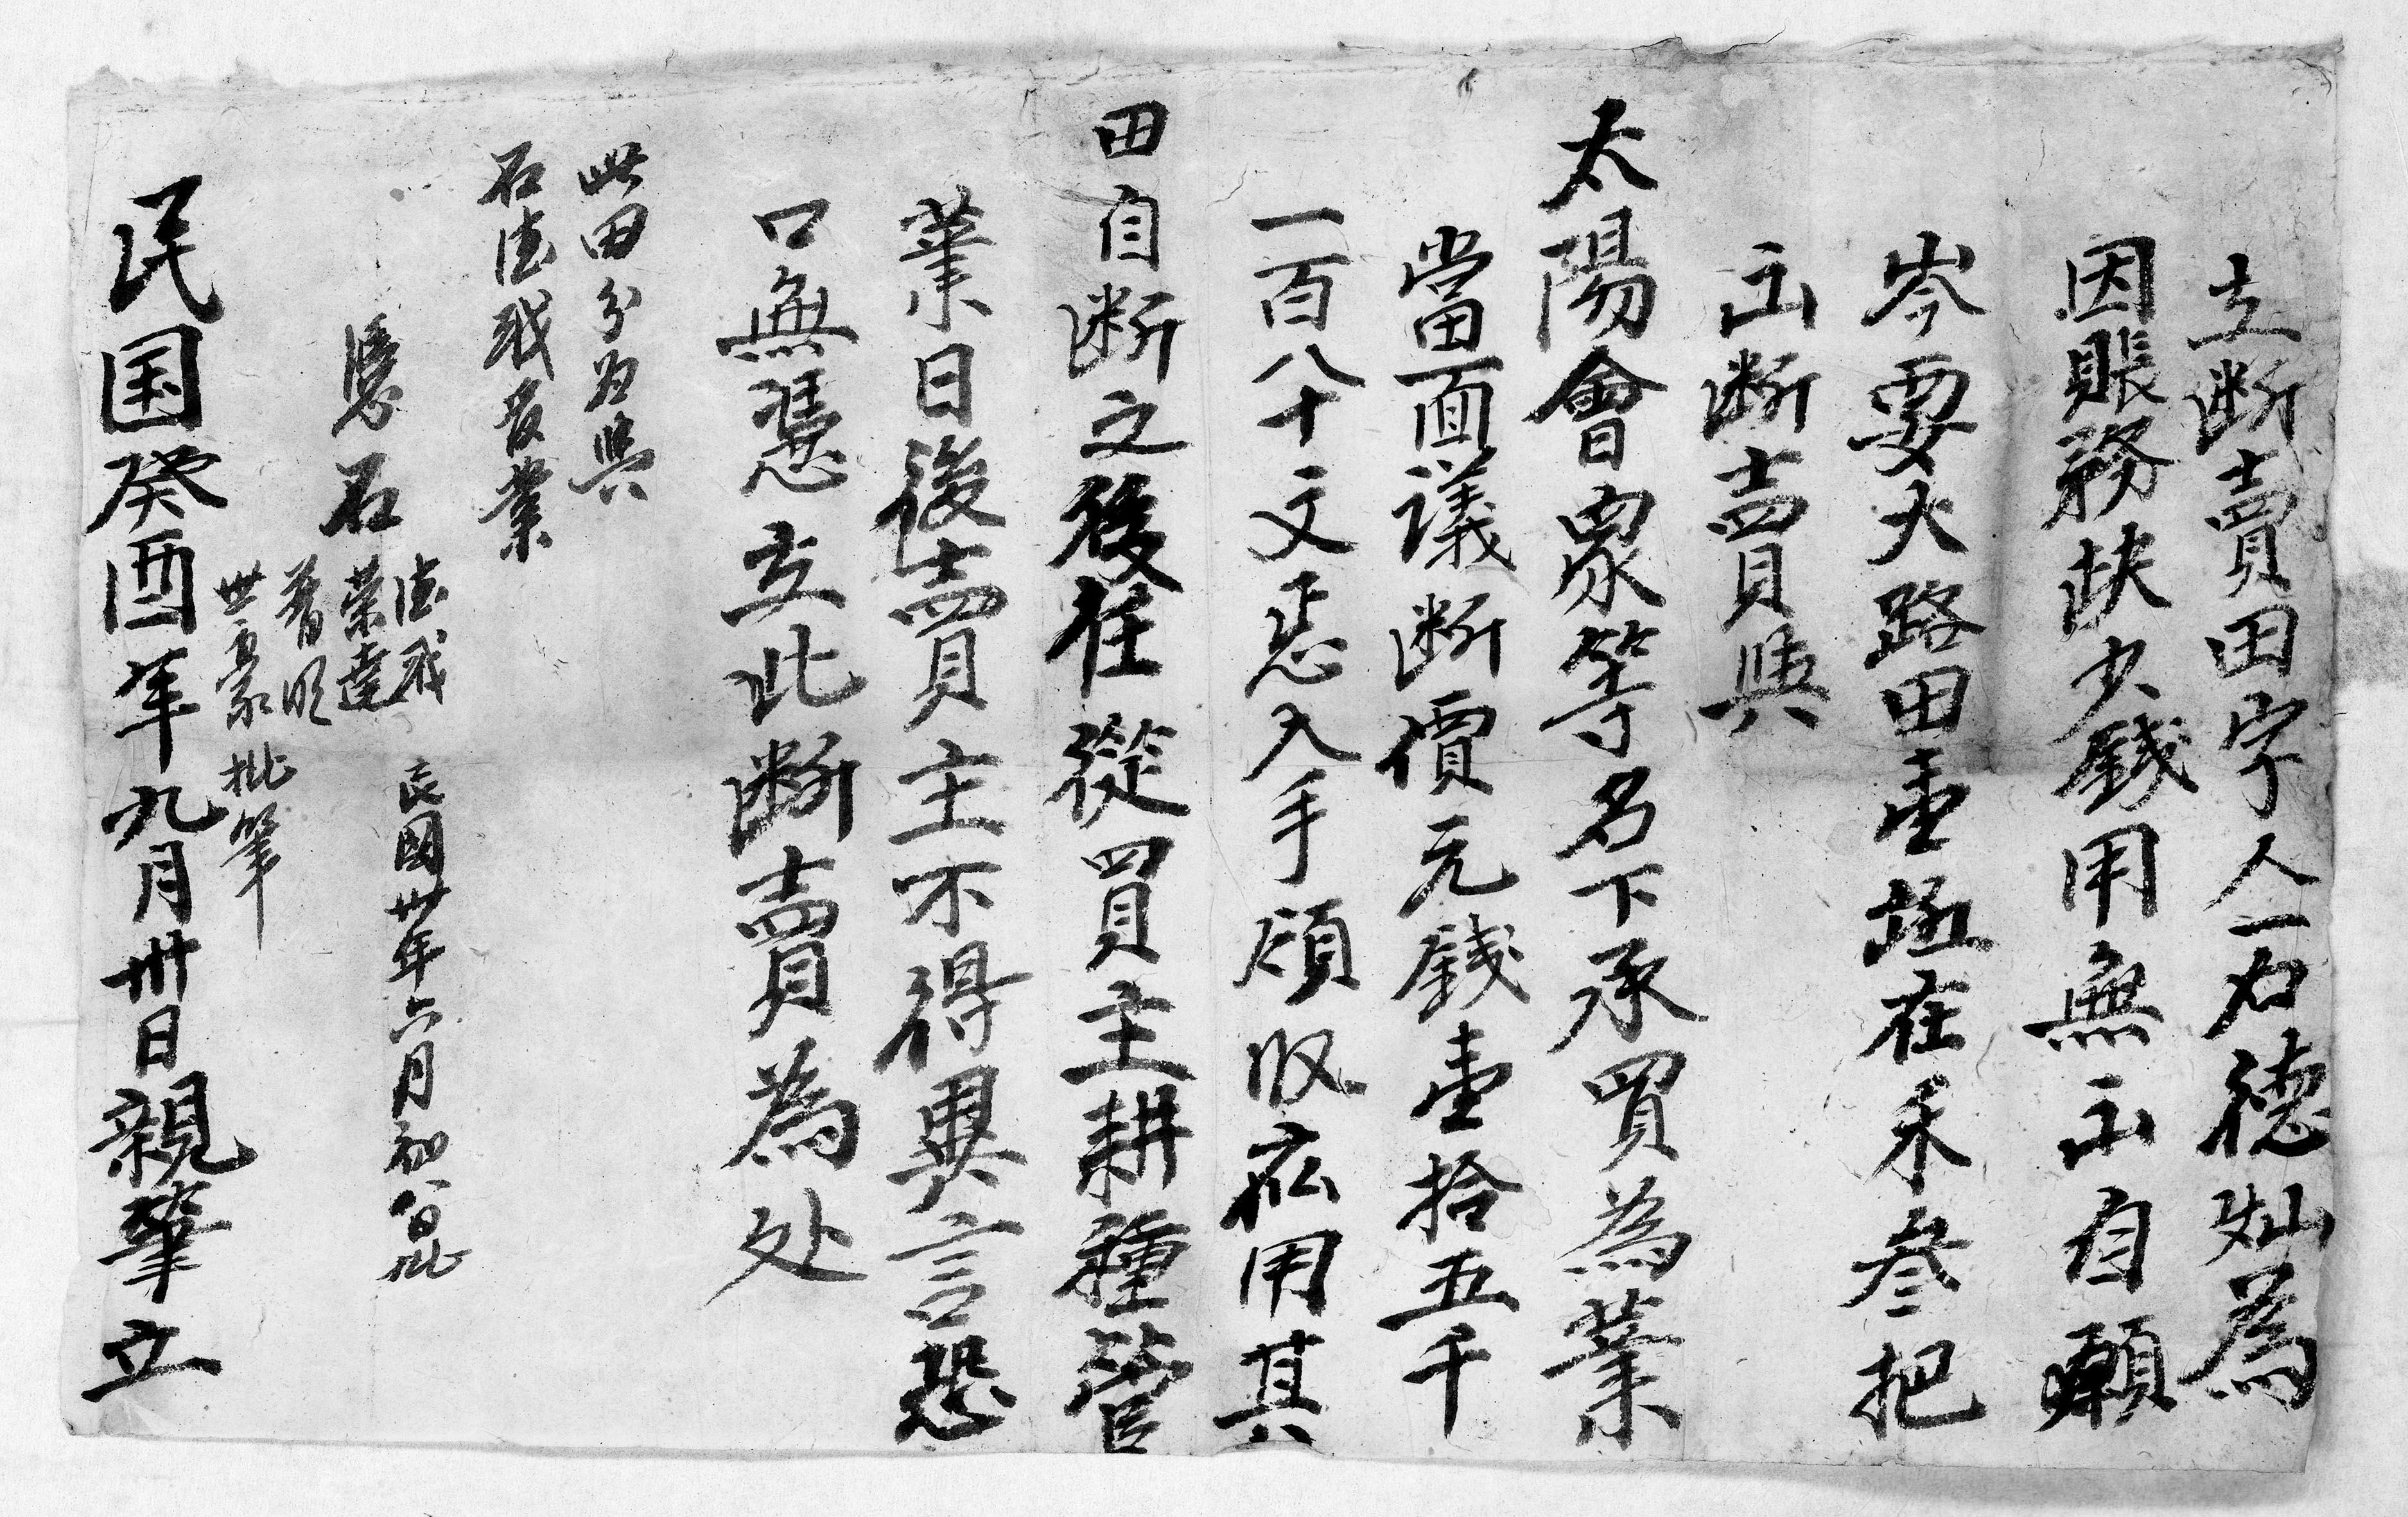 立断賣田字人石德灿為
因賬務缺少錢用無出自願
岑要大路田壹坵在禾叁把
出断賣與
太陽會眾等名下承買為業
當面議断價元錢壹拾五千
一百八十文悉入手領收応用其
田自断之後任從買主耕種管
業日後賣主不得異言恐
口無憑立此断賣為处
此田分為與
石德成管業
憑石
德成
榮達
普明
世豪批筆
民國卅年六月初八日批
民国癸酉年九月卅日親筆立